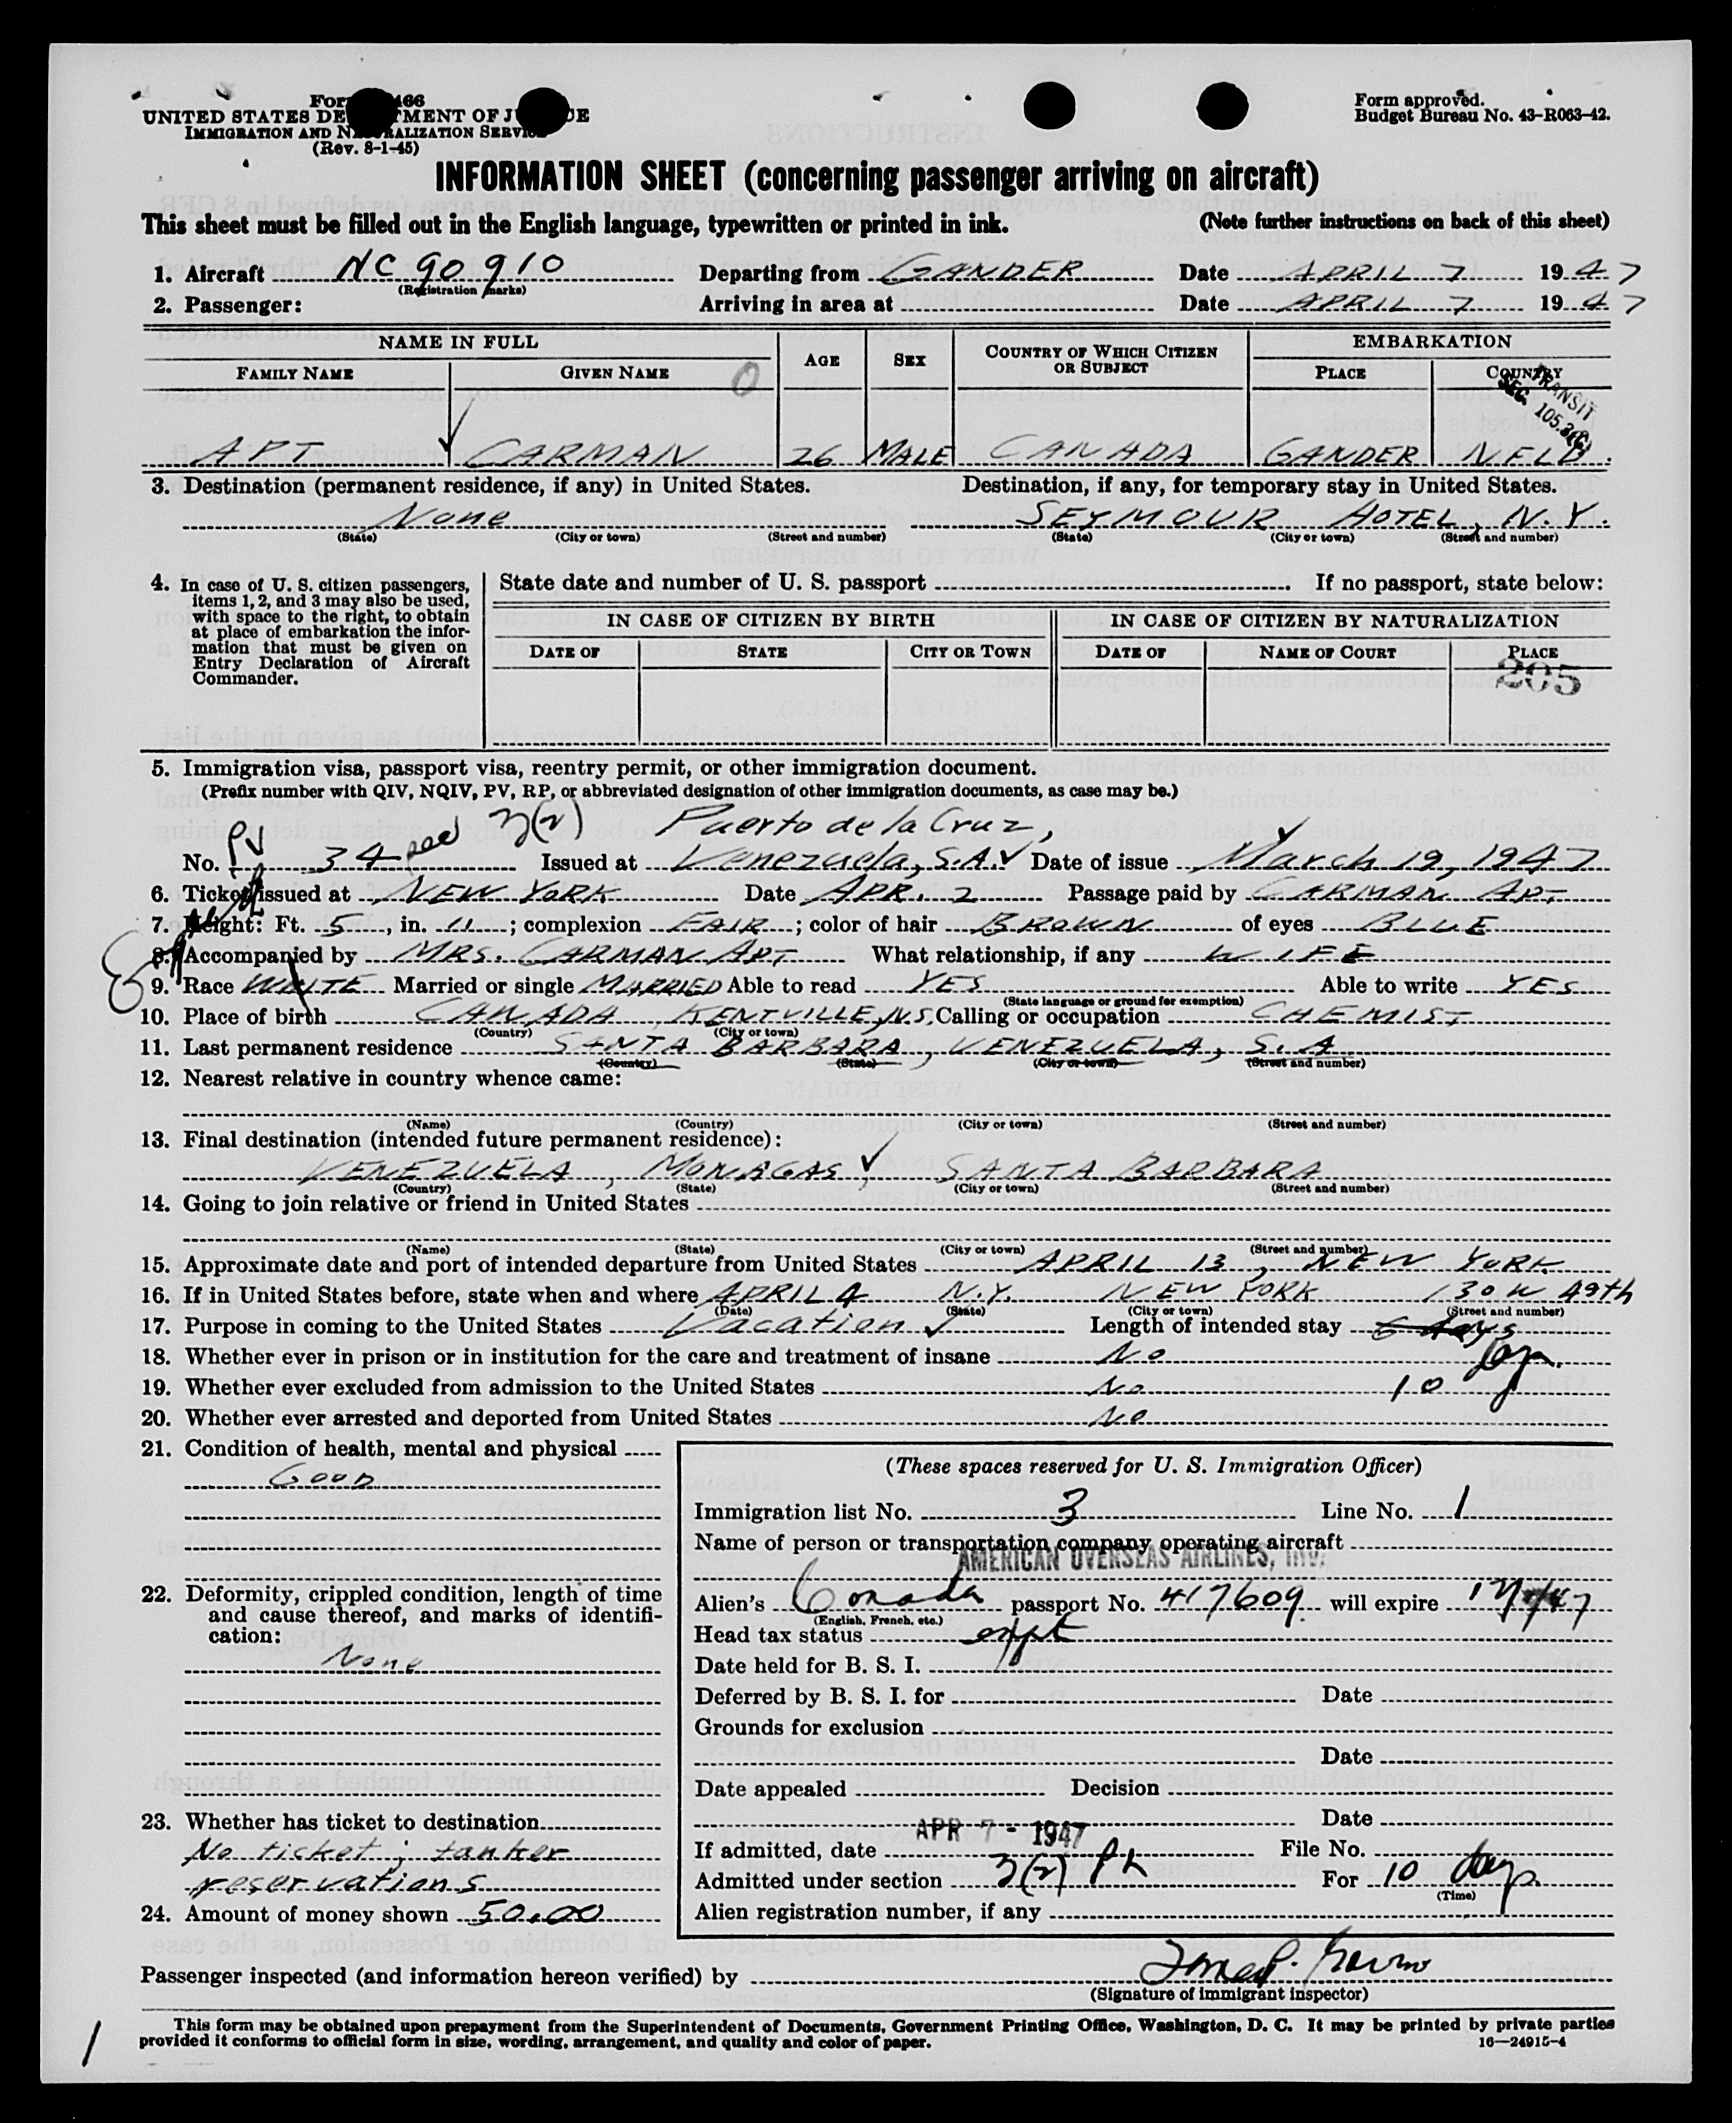 Form 466
UNITED STATES DEPARTMENT OF JUSTICE
IMMIGRATION AND NATURALIZATION SERVICE
(Rev. 8-1-45)
Form approved.
Budget Bureau No. 43-R063-42.
INFORMATION SHEET (concerning passenger arriving on aircraft)
This sheet must be filled out in the English language, typewritten or printed in ink. (Note further instructions on back of this sheet)
1. Aircraft NC 90910 Departing from GANDER Date APRIL 7 1947
(Registration marks)
2. Passenger: Arriving in area at Date APRIL 7 1947
NAME IN FULL AGE SEX COUNTRY OF WHICH CITIZEN OR SUBJECT EMBARKATION
FAMILY NAME GIVEN NAME PLACE COUNTRY
0
TRANSIT
SEC. 105.3(C)
APT CARMAN 26 MALE CANADA GANDER NFLD.
3. Destination (permanent residence, if any) in United States. Destination, if any, for temporary stay in United States.
None SEYMOUR HOTEL, N.Y.
(State) (City or town) (Street and number) (State) (City or town) (Street and number)
4. In case of U. S. citizen passengers, items 1, 2, and 3 may also be used, with space to the right, to obtain at place of embarkation the information that must be given on Entry Declaration of Aircraft Commander.
State date and number of U. S. passport If no passport, state below:
IN CASE OF CITIZEN BY BIRTH IN CASE OF CITIZEN BY NATURALIZATION
DATE OF STATE CITY OR TOWN DATE OF NAME OF COURT PLACE
205
5. Immigration visa, passport visa, reentry permit, or other immigration document.
(Prefix number with QIV, NQIV, PV, RP, or abbreviated designation of other immigration documents, as case may be.)
3(2) Puerto de la Cruz,
No. PV 34 Issued at Venezuela, S.A. Date of issue March 19, 1947
6. Ticket issued at NEW YORK Date APR. 2 Passage paid by CARMAN APT
7. Height: Ft. 5, in. 11; complexion FAIR; color of hair BROWN of eyes BLUE
8. Accompanied by MRS. CARMAN APT What relationship, if any WIFE
9. Race WHITE Married or single MARRIED Able to read YES Able to write YES
(State language or ground for exemption)
10. Place of birth CANADA, KENTVILLE, N.S. Calling or occupation CHEMIST
(Country) (City or town)
11. Last permanent residence SANTA BARBARA, VENEZUELA, S.A
(Country) (State) (City or town) (Street and number)
12. Nearest relative in country whence came:
(Name) (Country) (City or town) (Street and number)
13. Final destination (intended future permanent residence):
VENEZUELA, MONAGAS, SANTA BARBARA
(Country) (State) (City or town) (Street and number)
14. Going to join relative or friend in United States
(Name) (State) (City or town) (Street and number)
15. Approximate date and port of intended departure from United States APRIL 13, NEW YORK
16. If in United States before, state when and where APRIL 4 N.Y. NEW YORK 130 W 49th
(Date) (State) (City or town) (Street and number)
17. Purpose in coming to the United States Vacation Length of intended stay 6 days
18. Whether ever in prison or in institution for the care and treatment of insane No
19. Whether ever excluded from admission to the United States No 10 days
20. Whether ever arrested and deported from United States No
21. Condition of health, mental and physical
Good
22. Deformity, crippled condition, length of time and cause thereof, and marks of identification:
None
23. Whether has ticket to destination
No ticket; tanker
reservations
24. Amount of money shown 50.00
(These spaces reserved for U. S. Immigration Officer)
Immigration list No. 3 Line No. 1
Name of person or transportation company operating aircraft
AMERICAN OVERSEAS AIRLINES, INC.
Alien's Canada passport No. 417609 will expire
(English, French, etc.)
Head tax status expt
Date held for B. S. I.
Deferred by B. S. I. for Date
Grounds for exclusion
Date
Date appealed Decision
Date
APR 7 - 1947
If admitted, date File No.
Admitted under section 3(2) For 10 days
(Time)
Alien registration number, if any
Passenger inspected (and information hereon verified) by
(Signature of immigrant inspector)
This form may be obtained upon prepayment from the Superintendent of Documents, Government Printing Office, Washington, D. C. It may be printed by private parties
provided it conforms to official form in size, wording, arrangement, and quality and color of paper. 16—24915-4
1